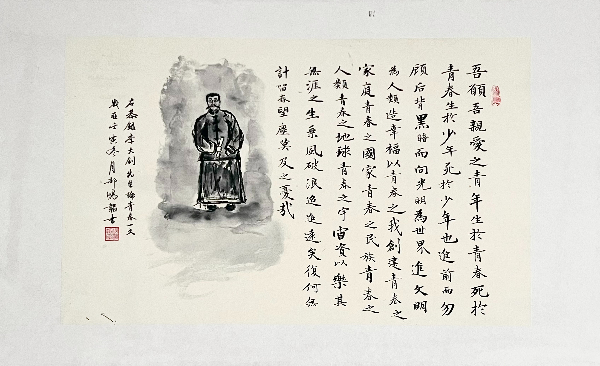 吾願吾親愛之青年生於青春死於
青春生於少年死於少年也進前而勿
顧后背黑暗而向光明為世界進文明
為人類造幸福以青春之我創建青春之
家庭青春之國家青春之民族青春之
人類青春之地球青春之宇宙資以樂其
無涯之生乘風破浪迢迢遠矣復何無
計留春望塵莫及之憂哉
右恭錄李大釗先生論青春一文
歲在壬寅冬月郝鴻 書